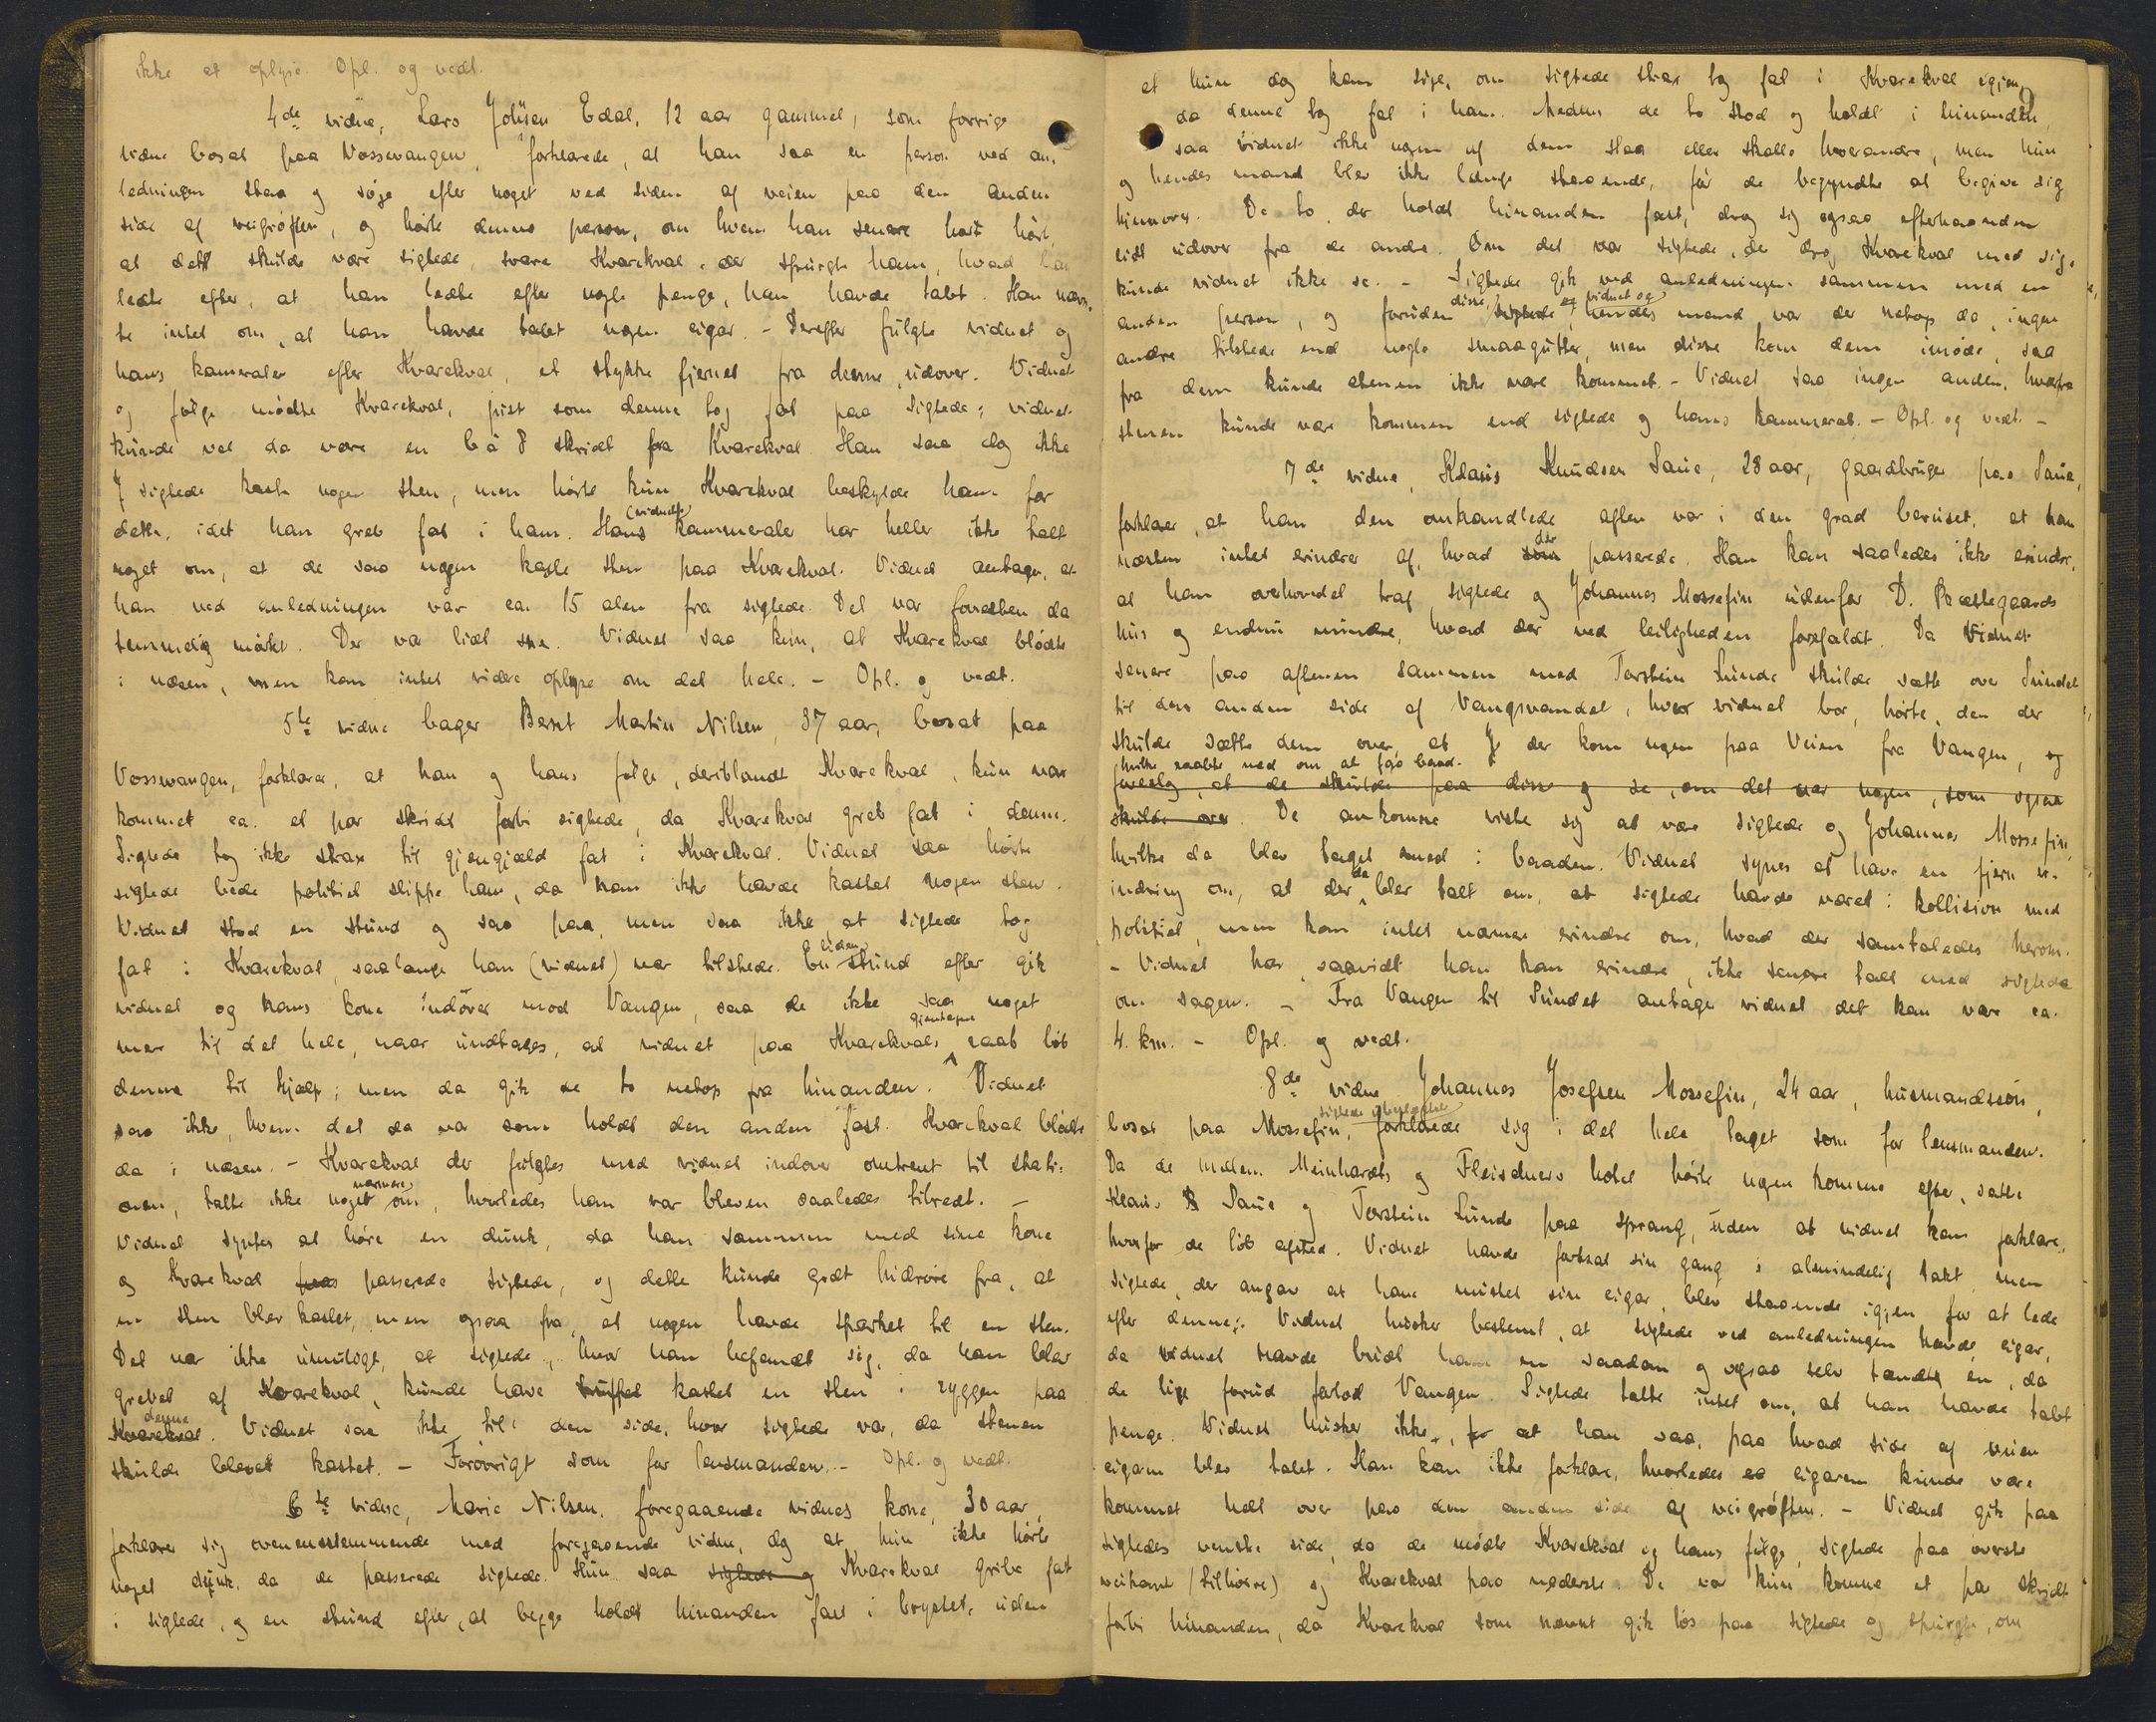 ikke at oplyse. Opl. og vedt.
4de vidne, Lars Johnsen Edal, 12 aar gammel, som forrige
vidne bosat paa Vossevangen, forklarede, at han saa en person ved an-
ledningen staa og søge efter noget ved siden af veien paa den anden
side af veigrøften, og hørte denne person, om hvem han senere har hørt,
at det skulde være sigtede, svare Kvarekval, der spurgte ham, hvad han
ledte efter, at han ledte efter nogle penge, han havde tabt. Han nævn-
te intet om, at han havde tabt nogen cigar. - Derefter fulgte vidnet og
hans kamerater efter Kvarekval, et stykke fjernet fra denne, udover. Vidnet
og følge mødte Kvarekval, just som denne tog fat paa sigtede; vidnet
kunde vel da være en 6 à 8 skridt fra Kvarekval. Han saa dog ikke
sigtede kaste nogen sten, men hørte kun Kvarekval beskylde ham for
dette, idet han greb fat i ham. Hans (vidnets) kammerater har heller ikke talt
noget om, at de saa nogen kaste sten paa Kvarekval. Vidnet antager, at
han ved anledningen var ca. 15 alen fra sigtede. Det var forresten da
temmelig mørkt. Der var lidt sne. Vidnet saa kun, at Kvarekval blødte
i næsen, men kan intet videre oplyse om det hele. - Opl. og vedt.
5te vidne bager Bernt Martin Nilsen, 37 aar, bosat paa
Vossevangen, forklarer, at han og hans følge, deriblandt Kvarekval, kun var
kommet ca. et par skridt forbi sigtede, da Kvarekval greb fat i denne.
Sigtede tog ikke strax til gjengjæld fat i Kvarekval. Vidnet hørte
sigtede bede politiet slippe ham, da han ikke havde kastet nogen sten.
Vidnet stod en stund og saa paa, men saa ikke, at sigtede tog
fat i Kvarekval, saalænge han (vidnet) var tilstede. En liden stund efter gik
vidnet og hans kone indover mod Vangen, saa de ikke saa noget
mer til det hele, naar undtages, at vidnet paa Kvarekvals gjentagne raab løb
denne til hjælp; men da gik de to netop fra hinanden. Vidnet
saa ikke, hvem det da var som holdt den anden fast. Kvarekval blødte
da i næsen. - Kvarekval der fulgtes med vidnet indover omtrent til stati-
onen, talte ikke noget nærmere om, hvorledes han var bleven saaledes tilredt. -
Vidnet syntes at høre en dunk, da han sammen med sine kone
og Kvarekval passerede sigtede, og dette kunde godt hidrøre fra, at
en sten blev kastet, men ogsaa fra, at nogen havde sparket til en sten.
Det var ikke umuligt, at sigtede, hvor han befandt sig, da han blev
grebet af Kvarekval, kunde have truffet kastet en sten i ryggen paa
Kvarekval denne. Vidnet saa ikke til den side, hvor sigtede var, da stenen
skulde blevet kastet. - Forøvrigt som for lensmanden. - Opl. og vedt.
6te vidne, Marie Nilsen, foregaaende vidnes kone, 30 aar,
forklarer sig overensstemmende med foregaaende vidne, dog at hun ikke hørte
noget dunk, da de passerede sigtede. Hun saa sigtede og Kvarekval gribe fat
i sigtede, og en stund efter, at begge holdt hinanden fast i brystet, uden
at hun dog kan sige, om sigtede strax tog fat i Kvarekval igjen,
da denne tog fat i ham. Medens de to stod og holdt i hinanden,
saa vidnet ikke nogen af dem slaa eller skalle hverandre, men hun
og hendes mand blev ikke længe staaende, før de begyndte at begive sig
hjemover. De to, der holdt hinanden fast, drog sig ogsaa efterhaanden
lidt udover fra de andre. Om det var sigtede, der drog Kvarekval med sig,
kunde vidnet ikke se. - Sigtede gik ved anledningen sammen med en
anden person, og foruden disse, sigtede og vidnet og hendes mand var der netop da ingen
andre tilstede end nogle smaagutter, men disse kom dem imøde, saa
fra dem kunde stenen ikke være kommet. - Vidnet saa ingen anden, hvorfra
stenen kunde være kommen end sigtede og hans kammerat. - Opl. og vedt. -
7de vidne, Klaus Knudsen Saue, 28 aar, gaardbruger paa Saue,
forklarer, at han den omhandlede aften var i den grad beruset, at han
næsten intet erindrer af, hvad som der passerede. Han kan saaledes ikke erindre,
at han overhovedet traf sigtede og Johannes Mossefin udenfor D. Præstegaards
hus og endnu mindre, hvad der ved leiligheden forefaldt. Da vidnet
senere paa aftenen sammen med Torstein Lunde skulde sætte over Sundet
til den anden side af Vangsvandet, hvor vidnet bor, hørte, den der
skulde sætte dem over, at der kom nogen paa Veien fra Vangen, og
hvilke raabte ned om at faa baad.
foreslog, at de skulde paa disse og se, om det var nogen, som ogsaa
skulde over. De ankomne viste sig at være sigtede og Johannes Mossefin,
hvilke da blev taget med i baaden. Vidnet synes at have en fjern er-
indring om, at der da blev talt om, at sigtede havde været i kollision med
politiet, men kan intet nærmere erindre om, hvad der samtaledes herom.
- Vidnet har, saavidt han kan erindre, ikke senere talt med sigtede
om sagen. - Fra Vangen til Sundet antager vidnet det kan være ca.
4. km. - Opl. og vedt.
8de vidne Johannes Josefsen Mossefin, 24 aar, husmandssøn,
bosat paa Mossefin, forklarede sig i det hele taget som for lensmanden.
Da de mellem Meinhardts og Fleischers hotel hørte nogen komme efter, satte
Klaus Saue og Torstein Lunde paa sprang, uden at vidnet kan forklare,
hvorfor de løb afsted. Vidnet havde fortsat sin gang i almindelig takt, men
sigtede, der angav at have mistet sin cigar, blev staaende igjen for at lede
efter denne. Vidnet husker bestemt, at sigtede ved anledningen havde cigar,
da vidnet havde budt ham en saadan og ogsaa selv tændte en, da
de lige forud forlod Vangen. Sigtede talte intet om, at han havde tabt
penge. Vidnet husker ikke, for at han saa, paa hvad side af veien
cigaren blev tabt. Han kan ikke forklare, hvorledes cigaren kunde være
kommet helt over paa den anden side af veigrøften. - Vidnet gik paa
sigtedes venstre side, da de mødte Kvarekval og hans følge, sigtede paa øverste
veikant (tilhøire) og Kvarekval paa nederste. De var kun komne et par skridt
forbi hinanden, da Kvarekval som nævnt gik løs paa sigtede og spurgte, om